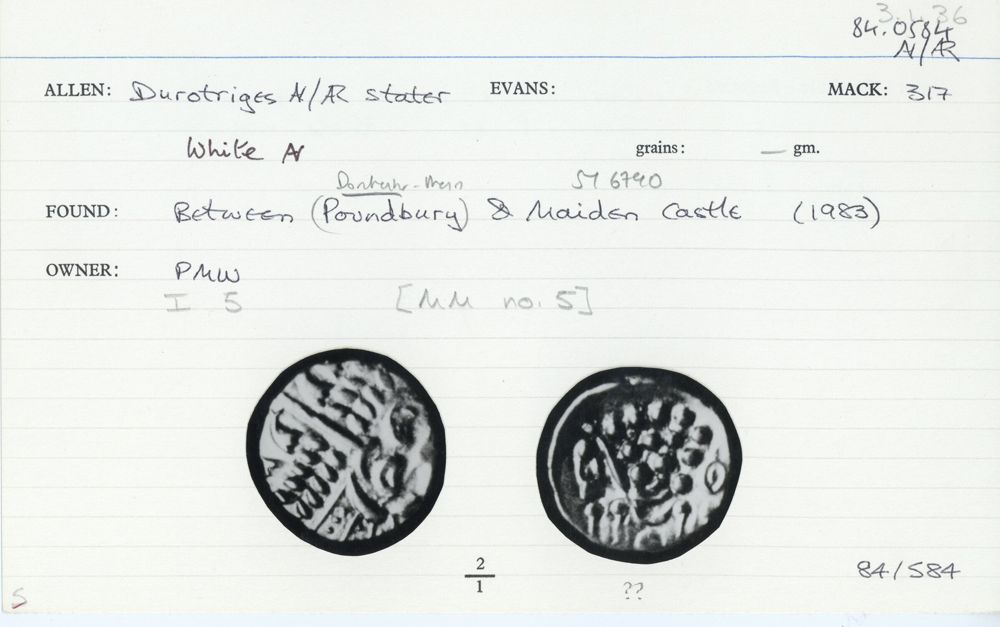 3.1.36
84.0584
N/AR
ALLEN: Durotriges N/AR stater EVANS: MACK: 317
White N grains: — gm.
SY 6790
FOUND: Between (Poundbury) & Maiden Castle (1983)
OWNER: PMW
I 5 [MM no. 5]
2
1
??
84/584
5